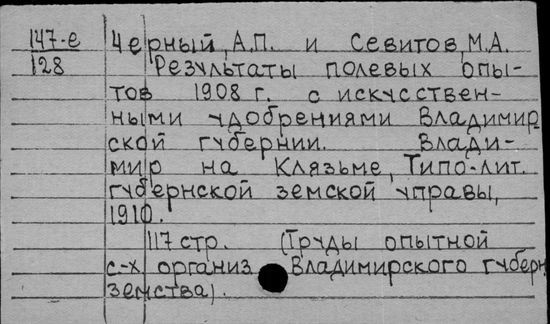 147-е Черный, А.П. и Севитов, М.А.
128 Результаты полевых опы-
тов 1908 г. с искусствен-
ными удобрениями Владимир-
ской губернии. Влади-
мир на Клязьме, Типо-лит.
губернской земской управы,
1910.
117 стр. (Труды опытной
с-х организ Владимирского губерн
земства).